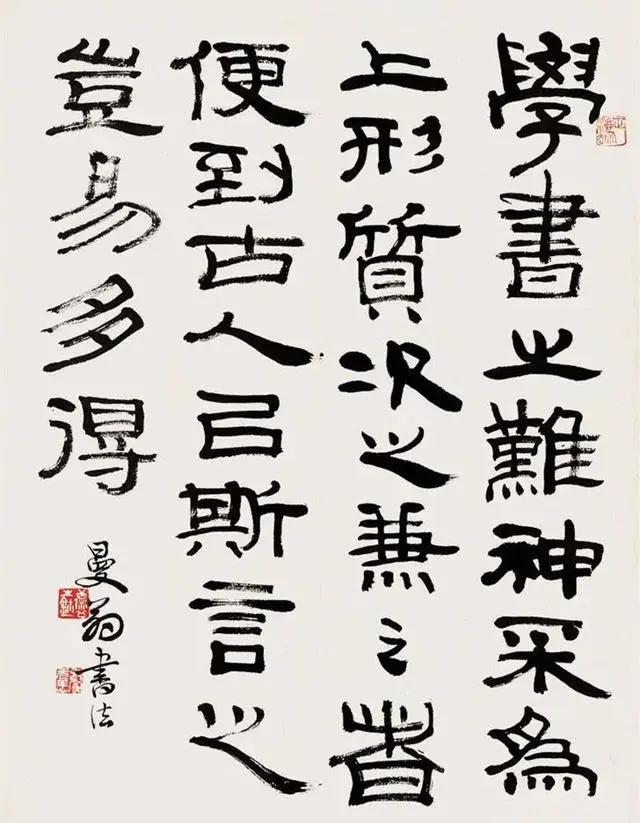 學書之難神采為
上形質次之兼之者
便到古人㠯斯言之
豈易多得
曼翁書法